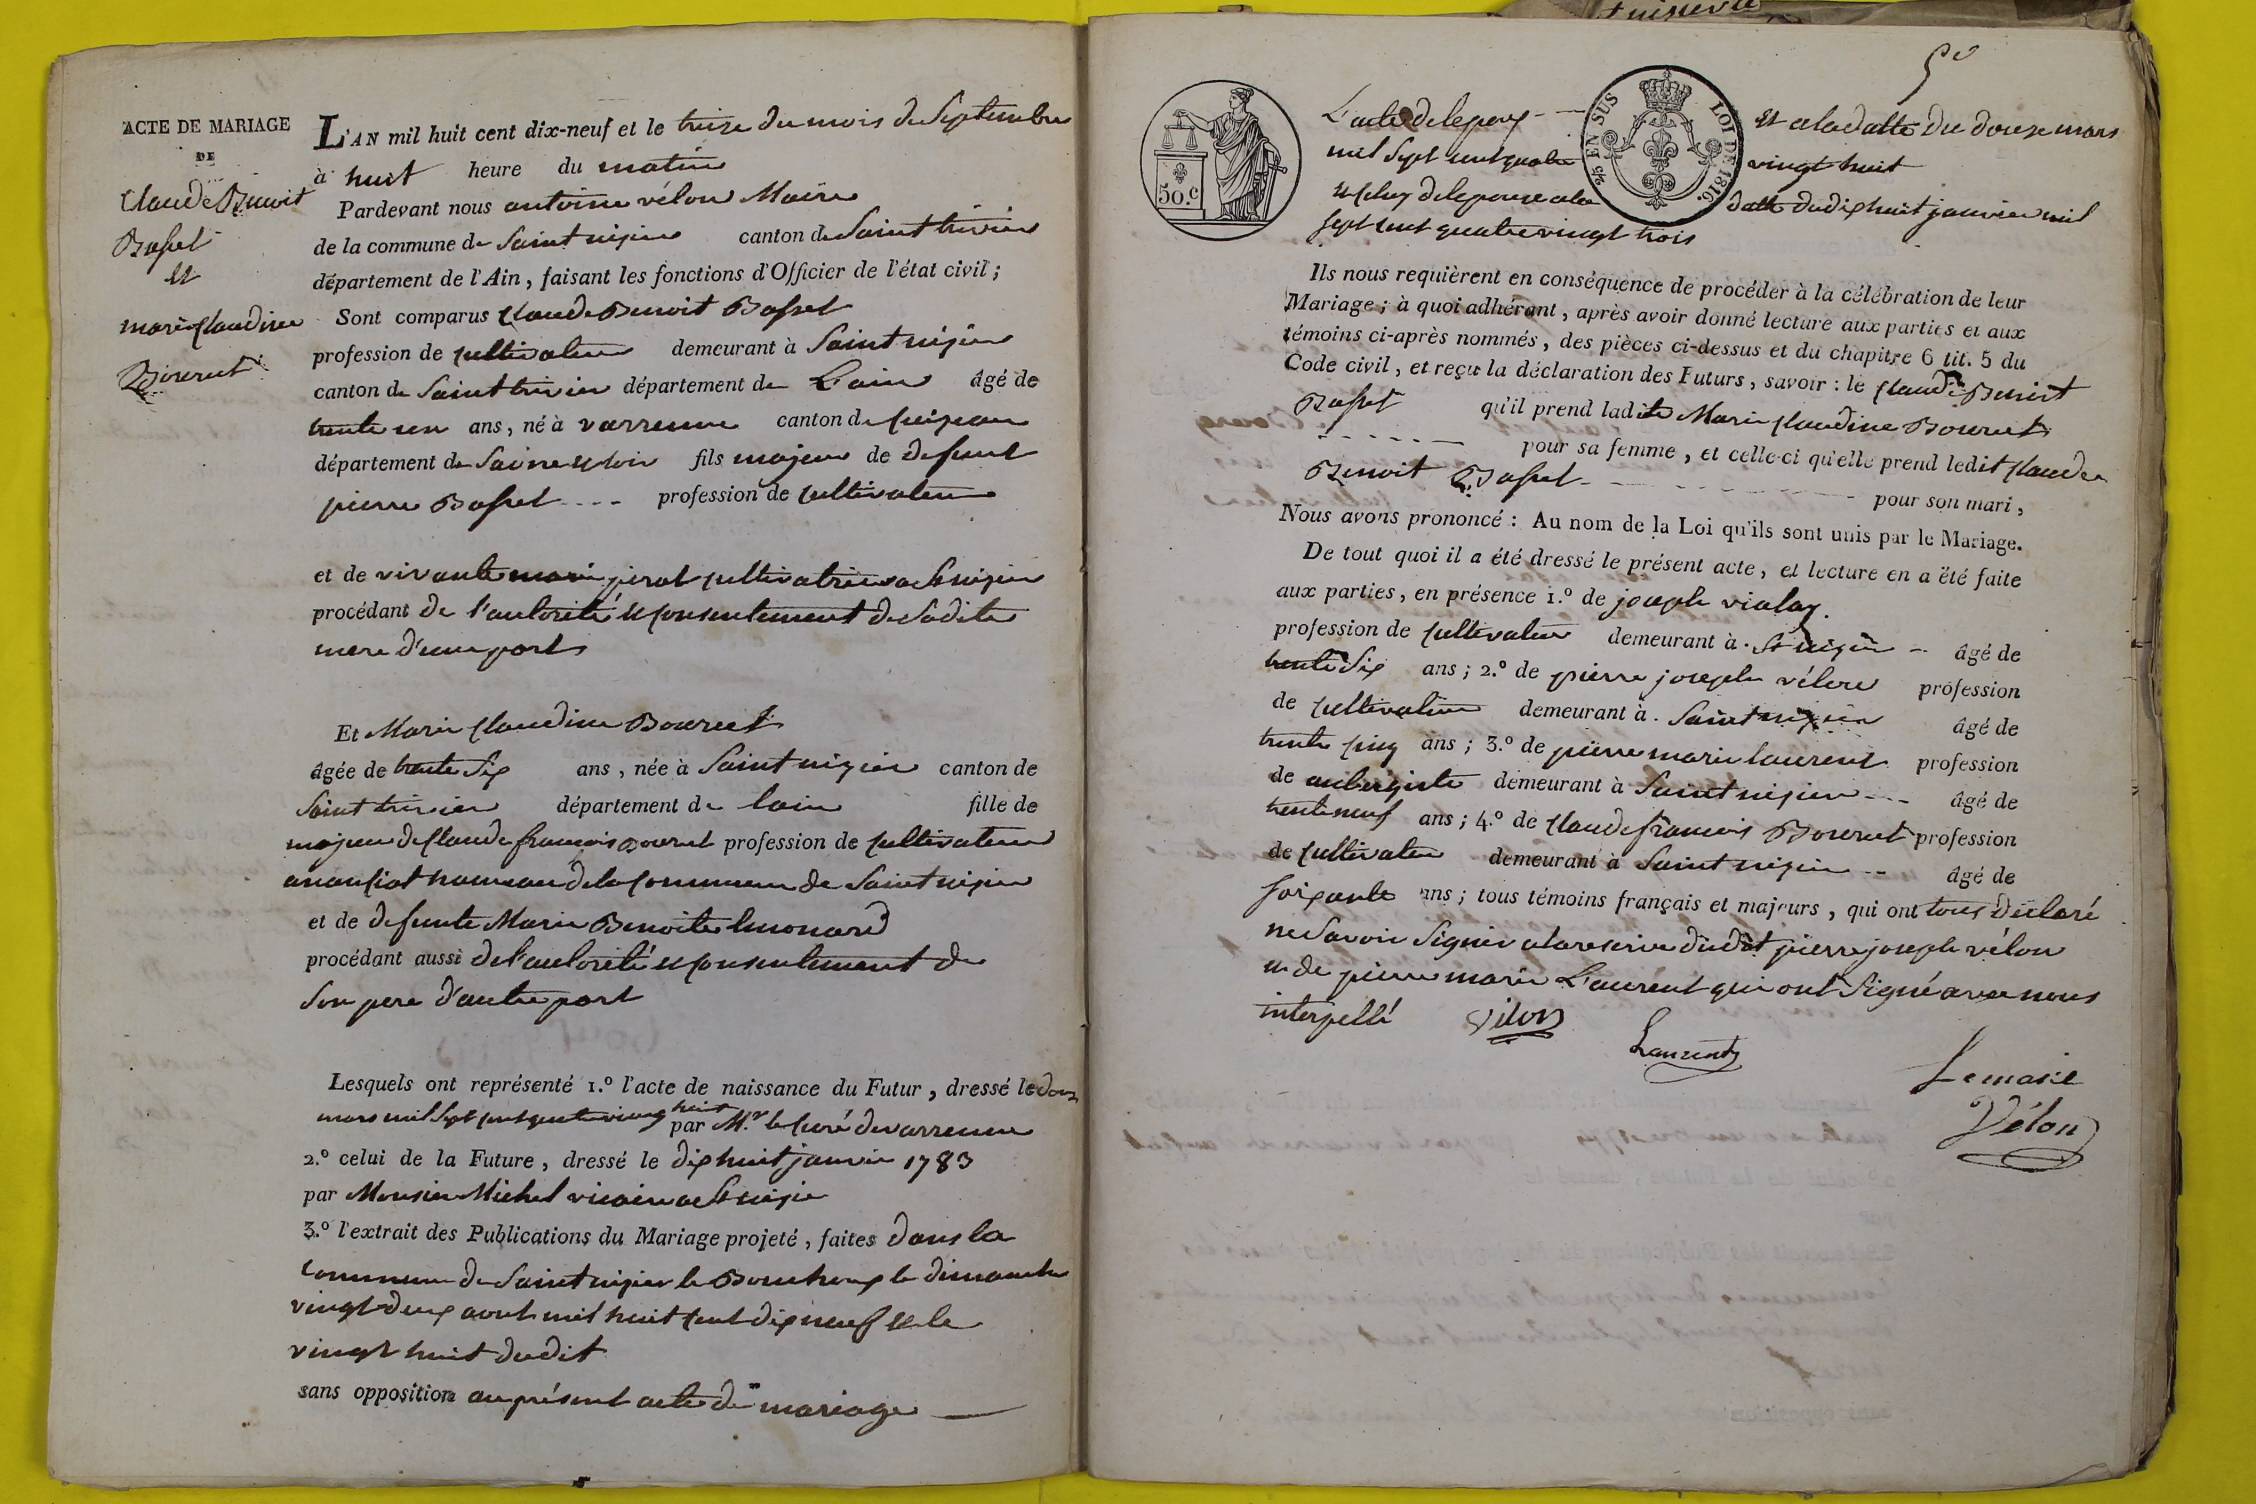 ACTE DE MARIAGE
DE
Claude Benoit
Bassel
et
marie Claudine
Bourrut
L'AN mil huit cent dix-neuf et le treize du mois de Septembre
à huit heure du matin
Pardevant nous antoine vélon Maire
de la commune de Saint nizier canton de Saint trivier
département de l'Ain, faisant les fonctions d'Officier de l'état civil;
Sont comparus Claude Benoit Bassel
profession de cultivateur demeurant à Saint nizier
canton de Saint trivier département de L'ain âgé de
trente un ans, né à varrenne canton de Cuizeau
département de Saône et loire fils majeur de defunt
pierre Bassel profession de cultivateur
et de vivante marie perat cultivatrice a St nizier
procédant de l'autorité et consentement de Sadite
mere d'une part
Et Marie Claudine Bourrut
âgée de trente Six ans, née à Saint nizier canton de
Saint trivier département de lain fille de
majeure de Claude françois Bourrut profession de cultivateur
a hameau de la Commune de Saint nizier
et de defunte Marie Benoite
procédant aussi de l'autorité et consentement de
Son pere d'autre part
Lesquels ont représenté 1.º l'acte de naissance du Futur, dressé le douze
mars mil Sept cent quatre vingt huit par M.r le Curé de varrenne
2.º celui de la Future, dressé le dix huit janvier 1783
par Monsieur Michel vicaire de St nizier
3.º l'extrait des Publications du Mariage projeté, faites dans la
commune de Saint nizier le Bouchoux le dimanche
vingt deux aout mil huit cent dix neuf et le
vingt huit dudit
sans opposition au présent acte de mariage
50
50.c
25 EN SUS
LOI DE 1816.
L'acte de lepoux est a la datte du douze mars
mil Sept cent quatre vingt huit
et celuy de lepouse a la datte du dix huit janvier mil
Sept cent quatre vingt trois
Ils nous requièrent en conséquence de procéder à la célébration de leur
Mariage; à quoi adhérant, après avoir donné lecture aux parties et aux
témoins ci-après nommés, des pièces ci-dessus et du chapitre 6 tit. 5 du
Code civil, et reçu la déclaration des Futurs, savoir: le Claude Benoit
Bassel qu'il prend ladite Marie Claudine Bourrut
pour sa femme, et celle-ci qu'elle prend ledit Claude
Benoit Bassel pour son mari,
Nous avons prononcé: Au nom de la Loi qu'ils sont unis par le Mariage.
De tout quoi il a été dressé le présent acte, et lecture en a été faite
aux parties, en présence 1.º de joseph vialay
profession de cultivateur demeurant à St nizier âgé de
trente Six ans; 2.º de pierre joseph vélon profession
de cultivateur demeurant à Saint nizier âgé de
trente cinq ans; 3.º de pierre marie laurent profession
de aubergiste demeurant à Saint nizier âgé de
trente neuf ans; 4.º de Claude françois Bourrut profession
de cultivateur demeurant à Saint nizier âgé de
soixante ans; tous témoins français et majeurs, qui ont tous déclaré
ne Savoir Signer a la reserve dudit pierre joseph vélon
et de pierre marie L'aurent qui ont Signé avec nous
interpellé
Vélon
Laurent
Le maire
Vélon